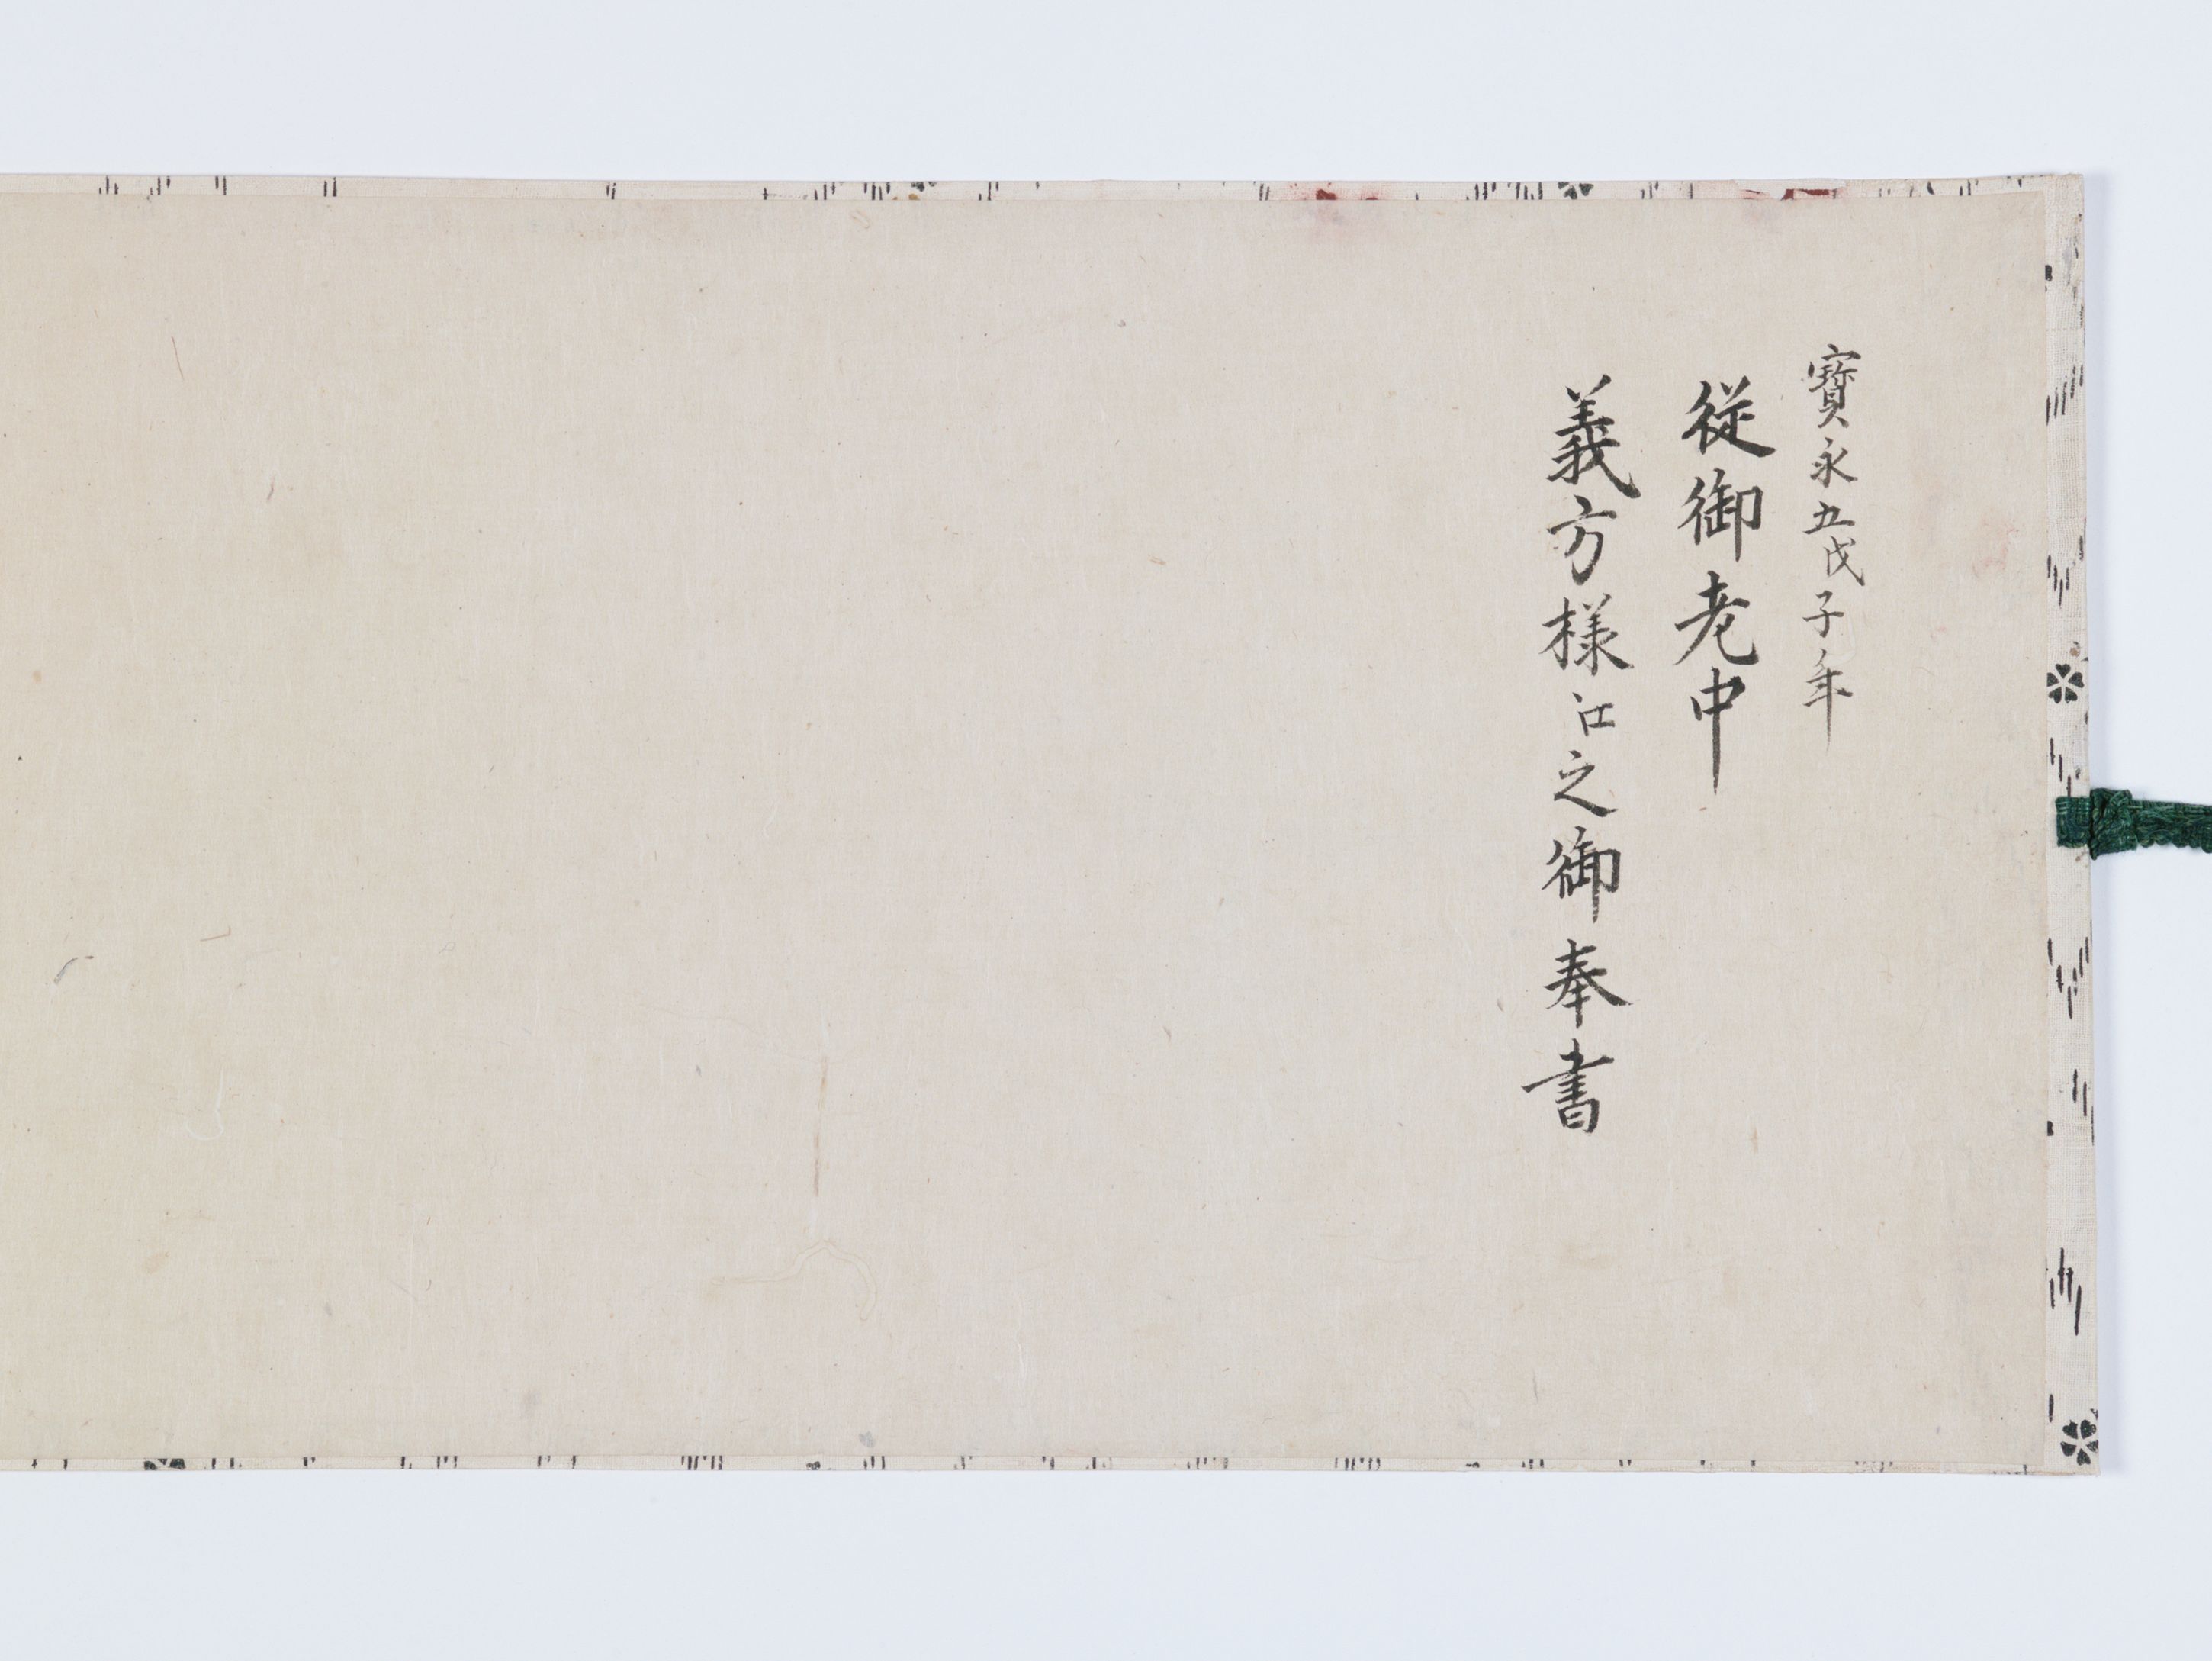 寳永五戊子年
従御老中
義方様江之御奉書